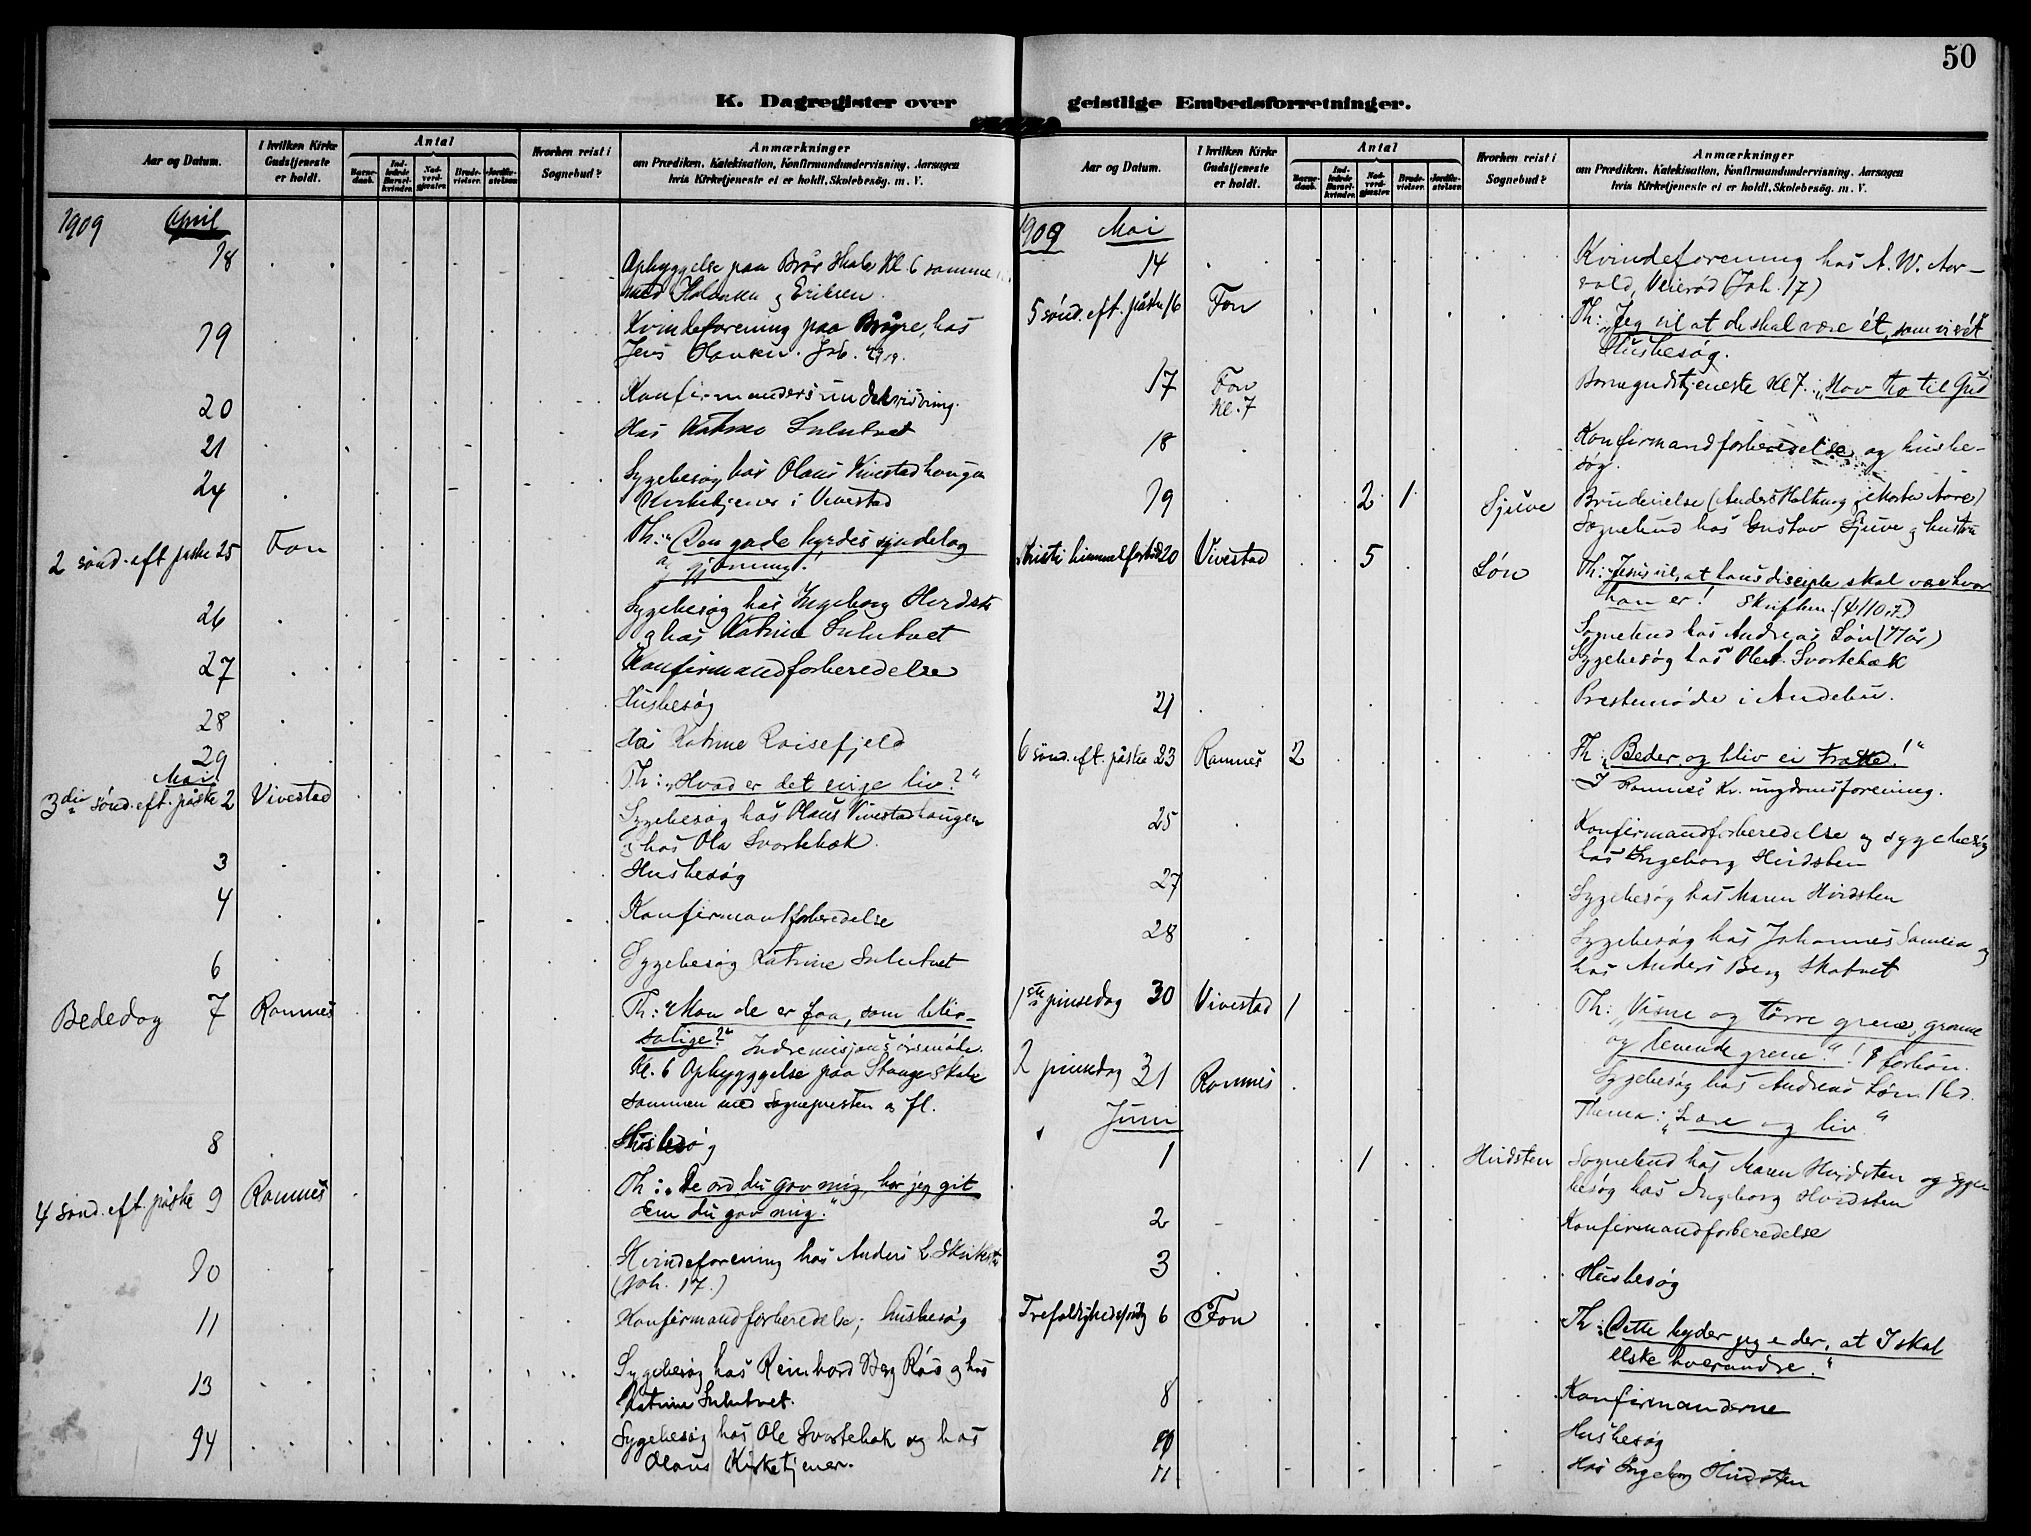 50
K. Dagregister over geistlige Embedsforretninger.
Aar og Datum.
I hvilken Kirke Gudstjeneste er holdt.
Antal
Barne-daab.
Ind-ledede Barsel-kvinder.
Nad-verd-gjæster.
Brude-vielser.
Jordfæ-stelser.
Hvorhen reist i Sognebud?
Anmærkninger
om Prædiken, Katekisation, Konfirmandundervisning, Aarsagen
hvis Kirketjeneste ei er holdt, Skolebesög. m. V.
1909 April
18 Opbyggelse paa Kl. 6 sammen
med og Eriksen.
19 Kvindeforening paa hos
Jens Hansen.
20 Konfirmandersundervisning.
21 Hos Katrine Sulutvet
24 Sygebesøg hos Olaus Vivestadhaugen
Kirketjener i Vivestad
2 sønd. eft. påske 25 Fon Th: "Den gode hyrdes sindelag
og gjerning!
26 Sygebesøg hos Ingeborg Hvidsten
og hos Katrine Sulutvet
27 Konfirmandforberedelse
28 Husbesøg
29 Hos Katrine Raisefjeld
Mai
3die sønd. eft. påske 2 Vivestad Th: "Hvad er det evige liv?"
Sygebesøg hos Olaus Vivestadhaugen
og hos Ola Svartebæk.
3 Husbesøg
4 Konfirmantforberedelse
6 Sygebesøg Katrine Sulutvet
Bededag 7 Ramnes Th: "Mon de er faa, som bliver
salige?" Indremisjons årsmøde.
Kl. 6 Opbygggelse paa Stange skole
sammen med Sognepresten o fl.
8 Husbesøg
4 sønd. eft. påske 9 Ramnes Th: "De ord, du gav mig, har jeg git
dem du gav mig."
10 Kvindeforening hos Anders L.
(Joh. 17.)
11 Konfirmandforberedelse; husbesøg
13 Sygebesøg hos Reinhard Berg Rås og hos
Katrine Sulutvet.
14 Sygebesøg hos Ole Svartebæk og hos
Olaus Kirketjener.
K. Dagregister over geistlige Embedsforretninger.
Aar og Datum.
I hvilken Kirke Gudstjeneste er holdt.
Antal
Barne-daab.
Ind-ledede Barsel-kvinder.
Nad-verd-gjæster.
Brude-vielser.
Jordfæ-stelser.
Hvorhen reist i Sognebud?
Anmærkninger
om Prædiken, Katekisation, Konfirmandundervisning, Aarsagen
hvis Kirketjeneste ei er holdt, Skolebesög. m. V.
1909 Mai
14 Kvindeforening hos A. W. Aar-
vold, Veierød (Joh. 17)
5 sønd. eft. påske 16 Fon Th: "Jeg vil at de skal være ét, som vi ét
Husbesøg.
17 Fon Kl. 7 Barnegudstjeneste Kl 7. "Hav tro til Gud
18 Konfirmandforberedelse og husbe-
søg.
19 2 1 Sjuve Brudevielse (Anders
Sognebud hos Gustav Sjuve og hustru
Kristi himmelfartsd 20 Vivestad 5 Løn Th: "Jesus vil, at hans disciple skal være hvor
han er! Skriftem.
Sognebud hos Andreas Løn (77 år)
Sygebesøg hos Svartebæk
21 Prestemøde i Andebu.
6 sønd. eft. påske 23 Ramnes 2 Th: "Beder og bliv ei trætte!"
I Ramnes Kr. ungdomsforening.
25 Konfirmandforberedelse og sygebesøg
hos Ingeborg Hvidsten
27 Sygebesøg hos Maren Hvidsten
28 Sygebesøg hos Johannes og
hos Anders Berg Skatvet
1ste pinsedag 30 Vivestad 1 Th: "Visne og tørre grene, grønne
og levende grene"!
Sygebesøg hos Andreas Løn
2 pinsedag 31 Ramnes Thema: "Lære og liv"
Juni
1 1 Hvidsten Sognebud hos Maren Hvidsten og Syge-
besøg hos Ingeborg Hvidsten
2 Konfirmandforberedelse
3 Husbesøg
Trefoldighedssøndag 6 Fon Th: "Dette byder jeg eder, at I skal
elske hverandre."
8 Konfirmanderne
10 Husbesøg
11 Hos Ingeborg Hvidsten